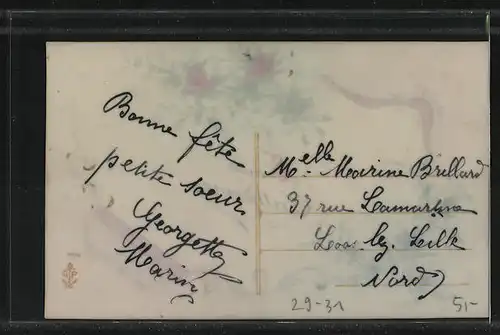 Bonne fête
petite soeur
Georgette
Marin
Melle Marine Brillard
37 rue Lamartine
Loos lez Lille
Nord
29-31
5,-